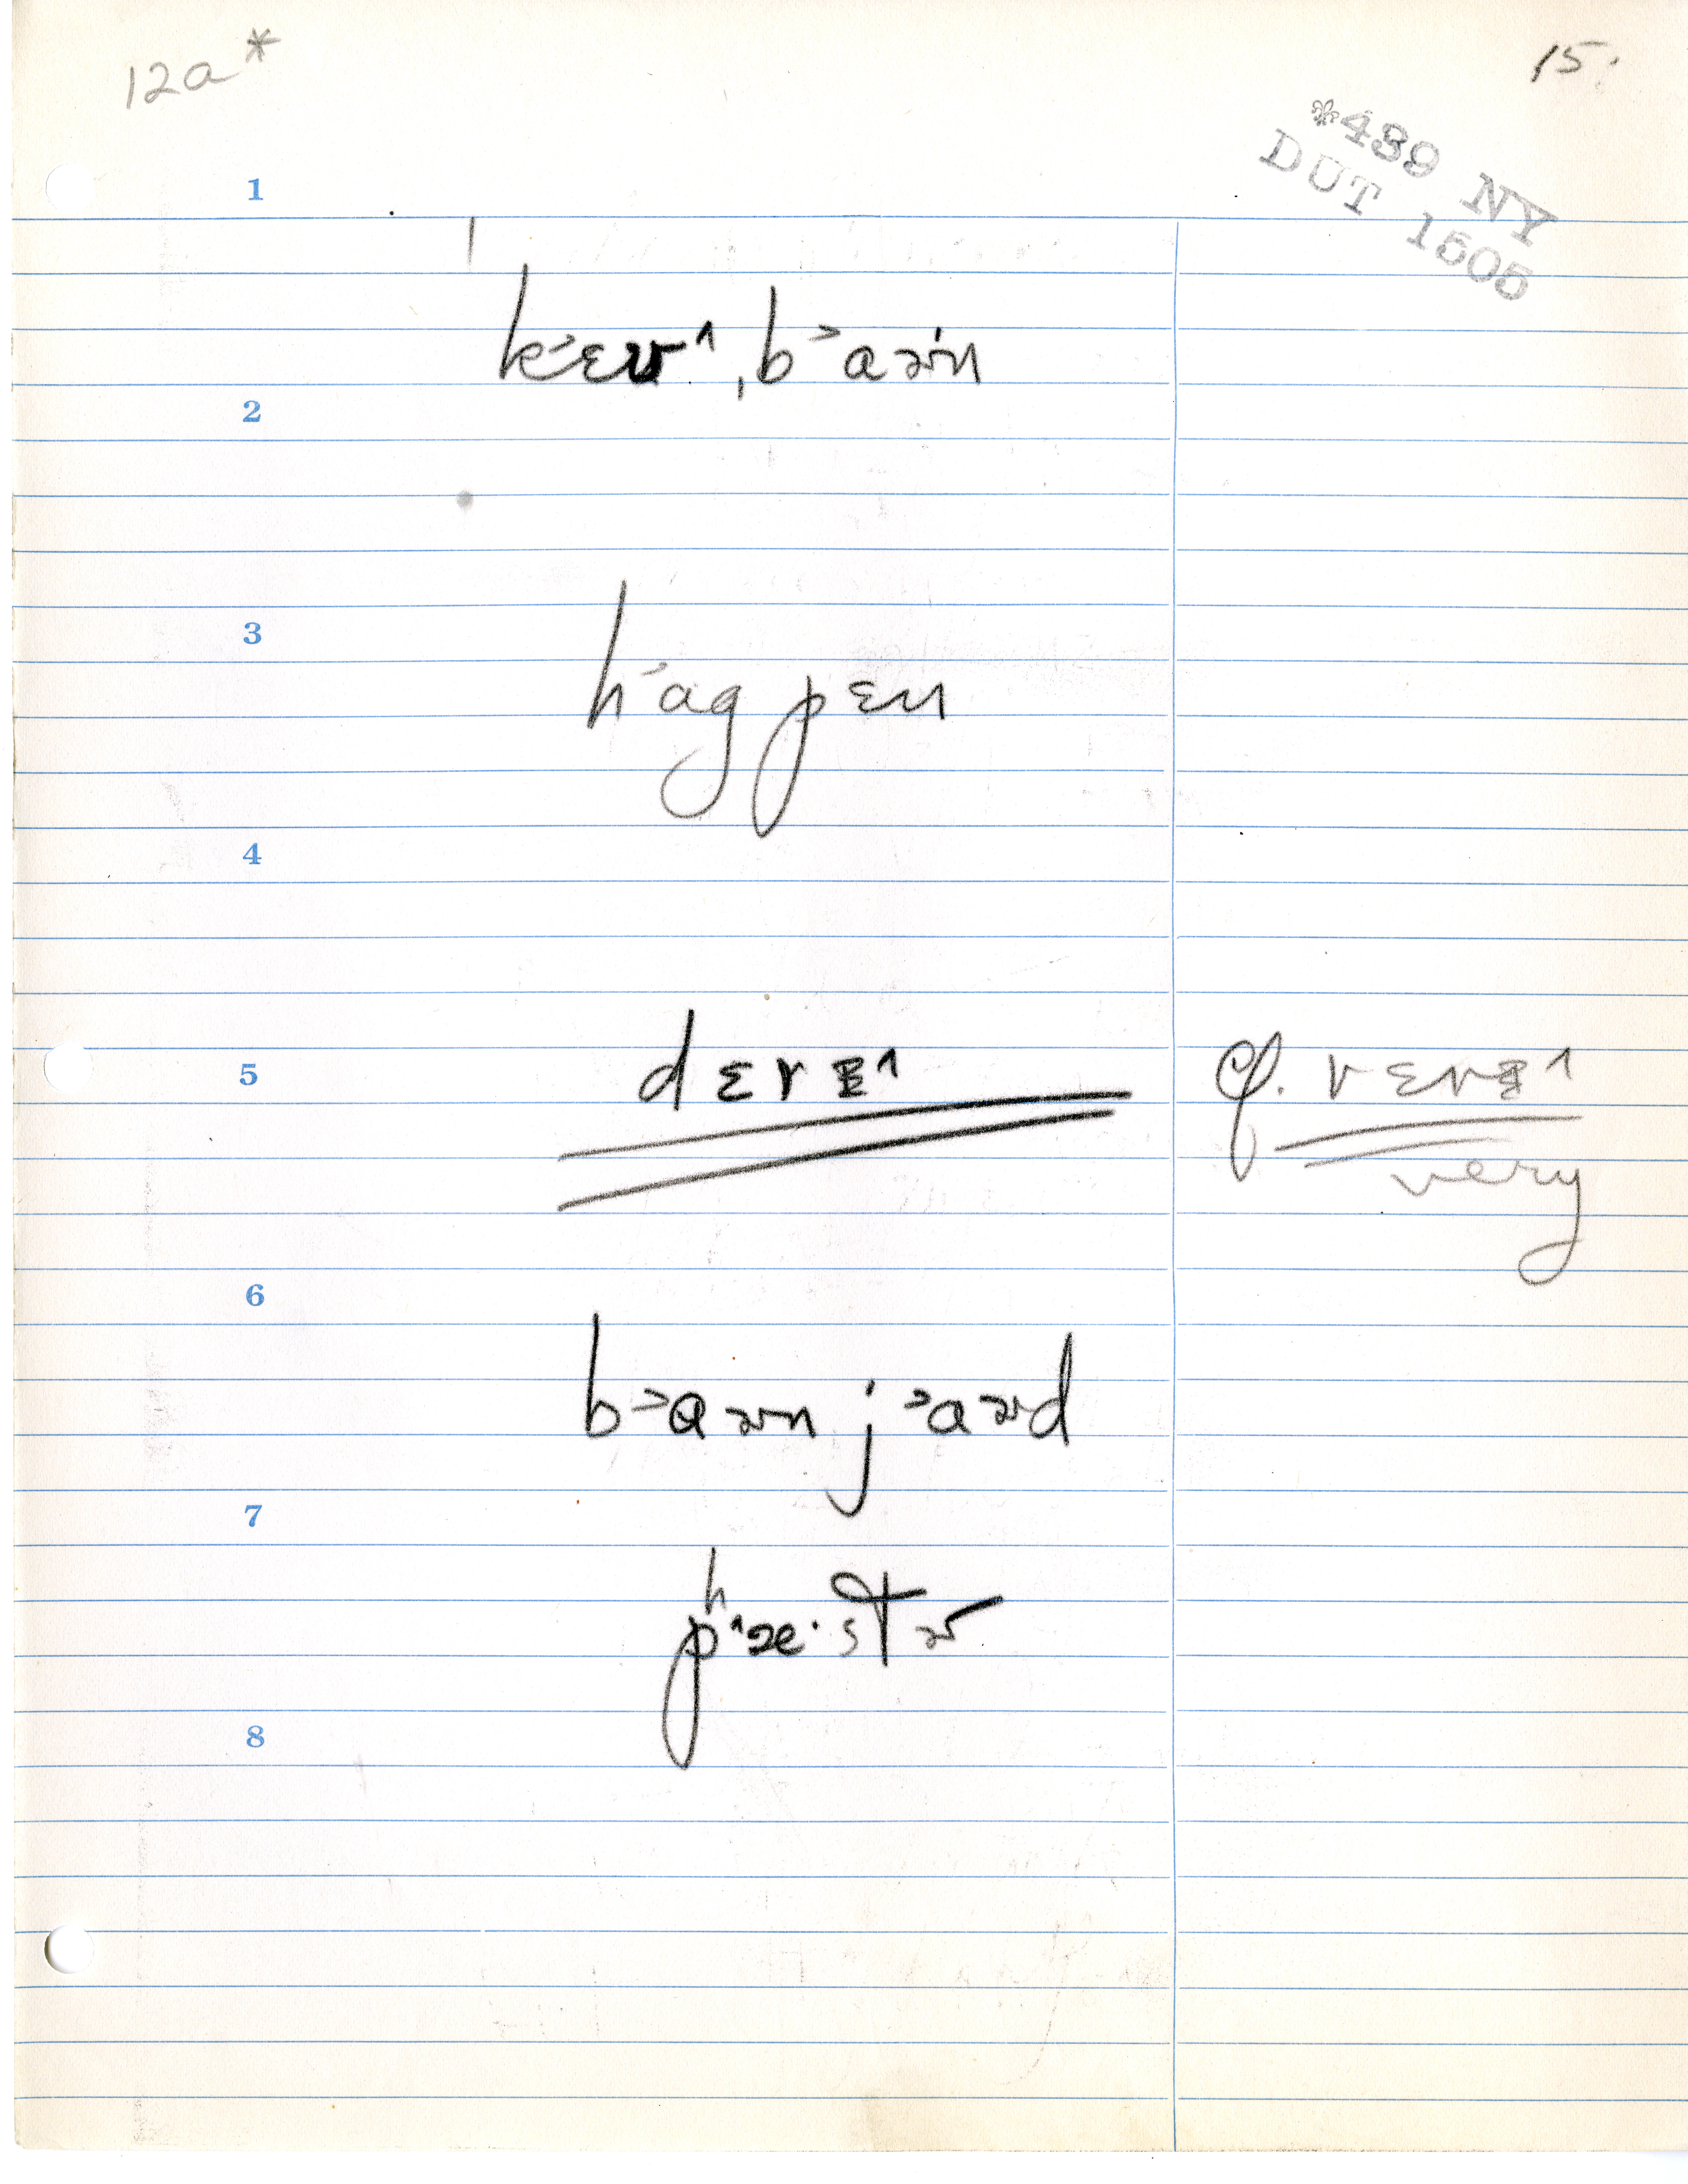 12a*
15.
*439 NY
DUT 1505
1
ˈkɛʊ^ˌb˃aɚn
2
3
h˃ag pɛn
4
5
dɛrɪ^
cf. vɛrɪ^
very
6
b˃aɚn j˃aɚd
7
pʰ^æ·stɚ
8